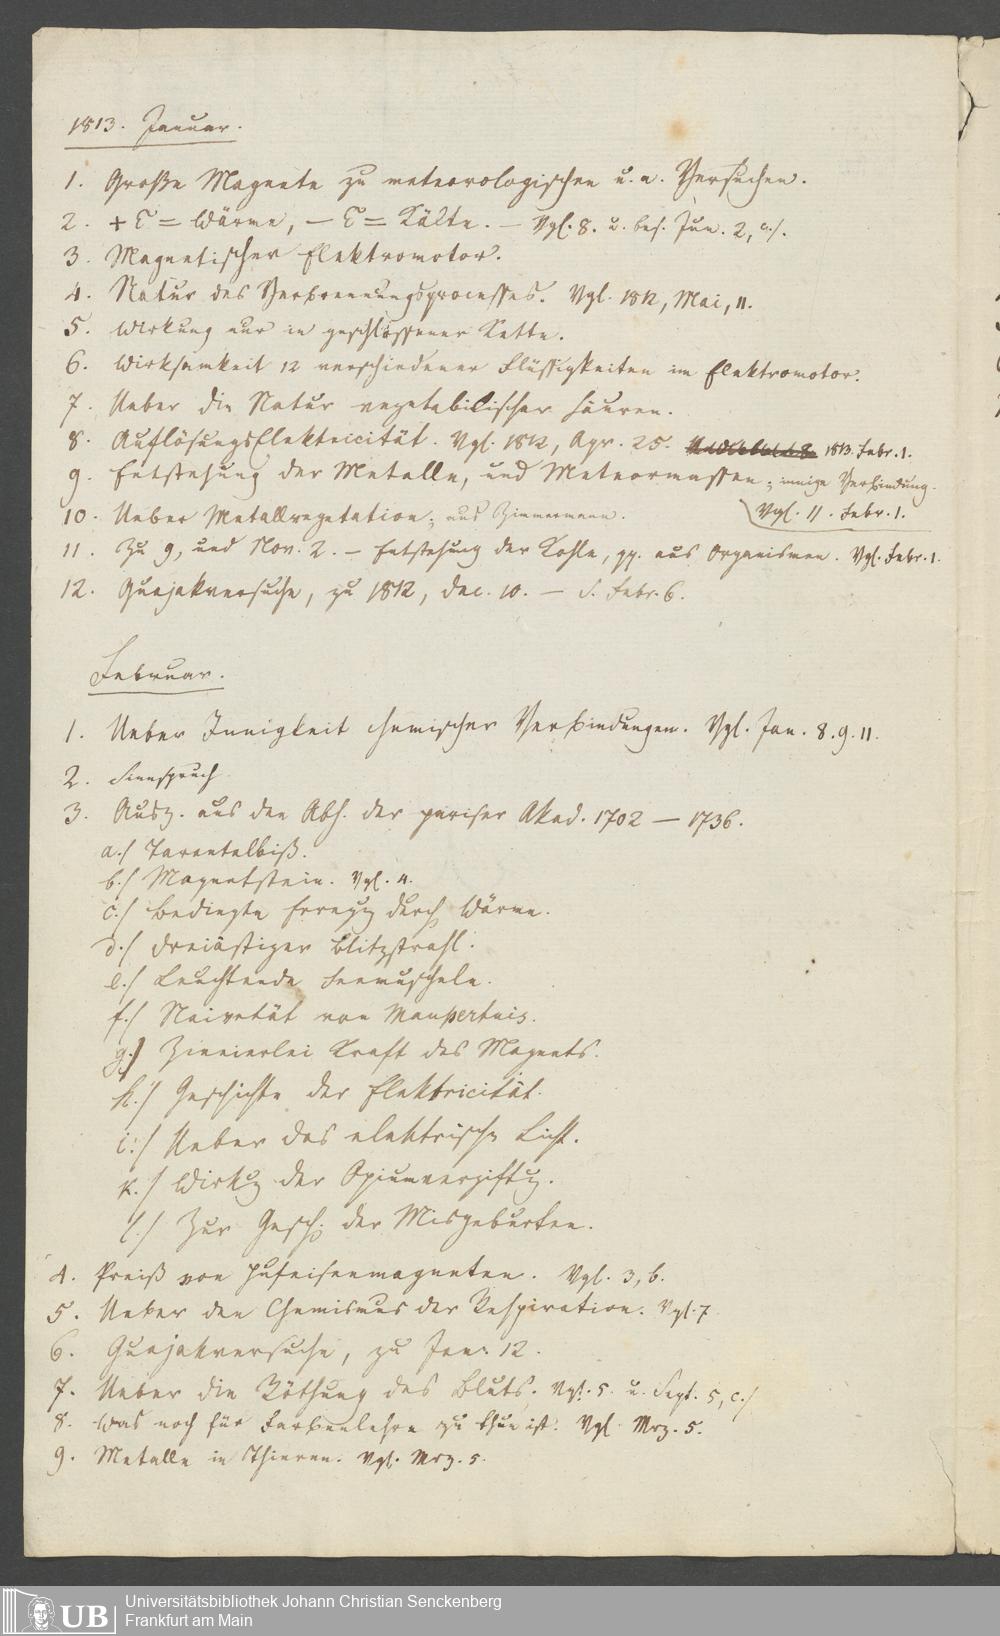 1813. Januar.
1. Große Magnete zu meteorologischen u. a. Versuchen.
2. + E = Wärme, — E = Kälte. — Vgl. 8. u. bes. Jun. 2, a./.
3. Magnetischer Elektromotor.
4. Natur des Verbrennungsprocesses. Vgl. 1812, Mai, 11.
5. Wirkung nur in geschlossener Kette.
6. Wirksamkeit 12 verschiedener Flüssigkeiten im Elektromotor.
7. Ueber die Natur vegetabilischer Säuren.
8. AuflösungsElektricität. Vgl. 1812, Apr. 25. 1813. Febr. 1.
9. Entstehung der Metalle, und Meteormassen; innige Verbindung.
Vgl. 11. Febr. 1.
10. Ueber Metallvegetation; aus Zimmermann.
11. Zu 9, und Nov. 2. — Entstehung der Kohle, pp. aus Organismen. Vgl. Febr. 1.
12. Guajakversuche, zu 1812, Dec. 10. — S. Febr. 6.
Februar.
1. Ueber Innigkeit chemischer Verbindungen. Vgl. Jan. 8. 9. 11.
2. Sinnspruch
3. Ausz. aus den Abh. der pariser Akad. 1702 — 1736.
a./ Tarantelbiß.
b./ Magnetstein. Vgl. 4.
c./ Bedingte Erregg durch Wärme.
d./ Dreiästiger Blitzstrahl.
e./ Leuchtende Seemuscheln.
f./ Naivetät von Maupertuis.
g./ Zweierlei Kraft des Magnets.
h./ Geschichte der Elektricität.
i./ Ueber das elektrische Licht.
k./ Wirkg der Opiumvergiftg.
l./ Zur Gesch. der Misgeburten.
4. Preiß von Hufeisenmagneten. Vgl. 3, b.
5. Ueber den Chemismus der Respiration. Vgl. 7
6. Guajakversuche, zu Jan. 12.
7. Ueber die Röthung des Bluts. Vgl. 5. u. Sept. 5, c./
8. Was noch für Farbenlehre zu thun ist. Vgl. Mrz. 5.
9. Metalle in Thieren. Vgl. Mrz. 5.
UB
Universitätsbibliothek Johann Christian Senckenberg
Frankfurt am Main